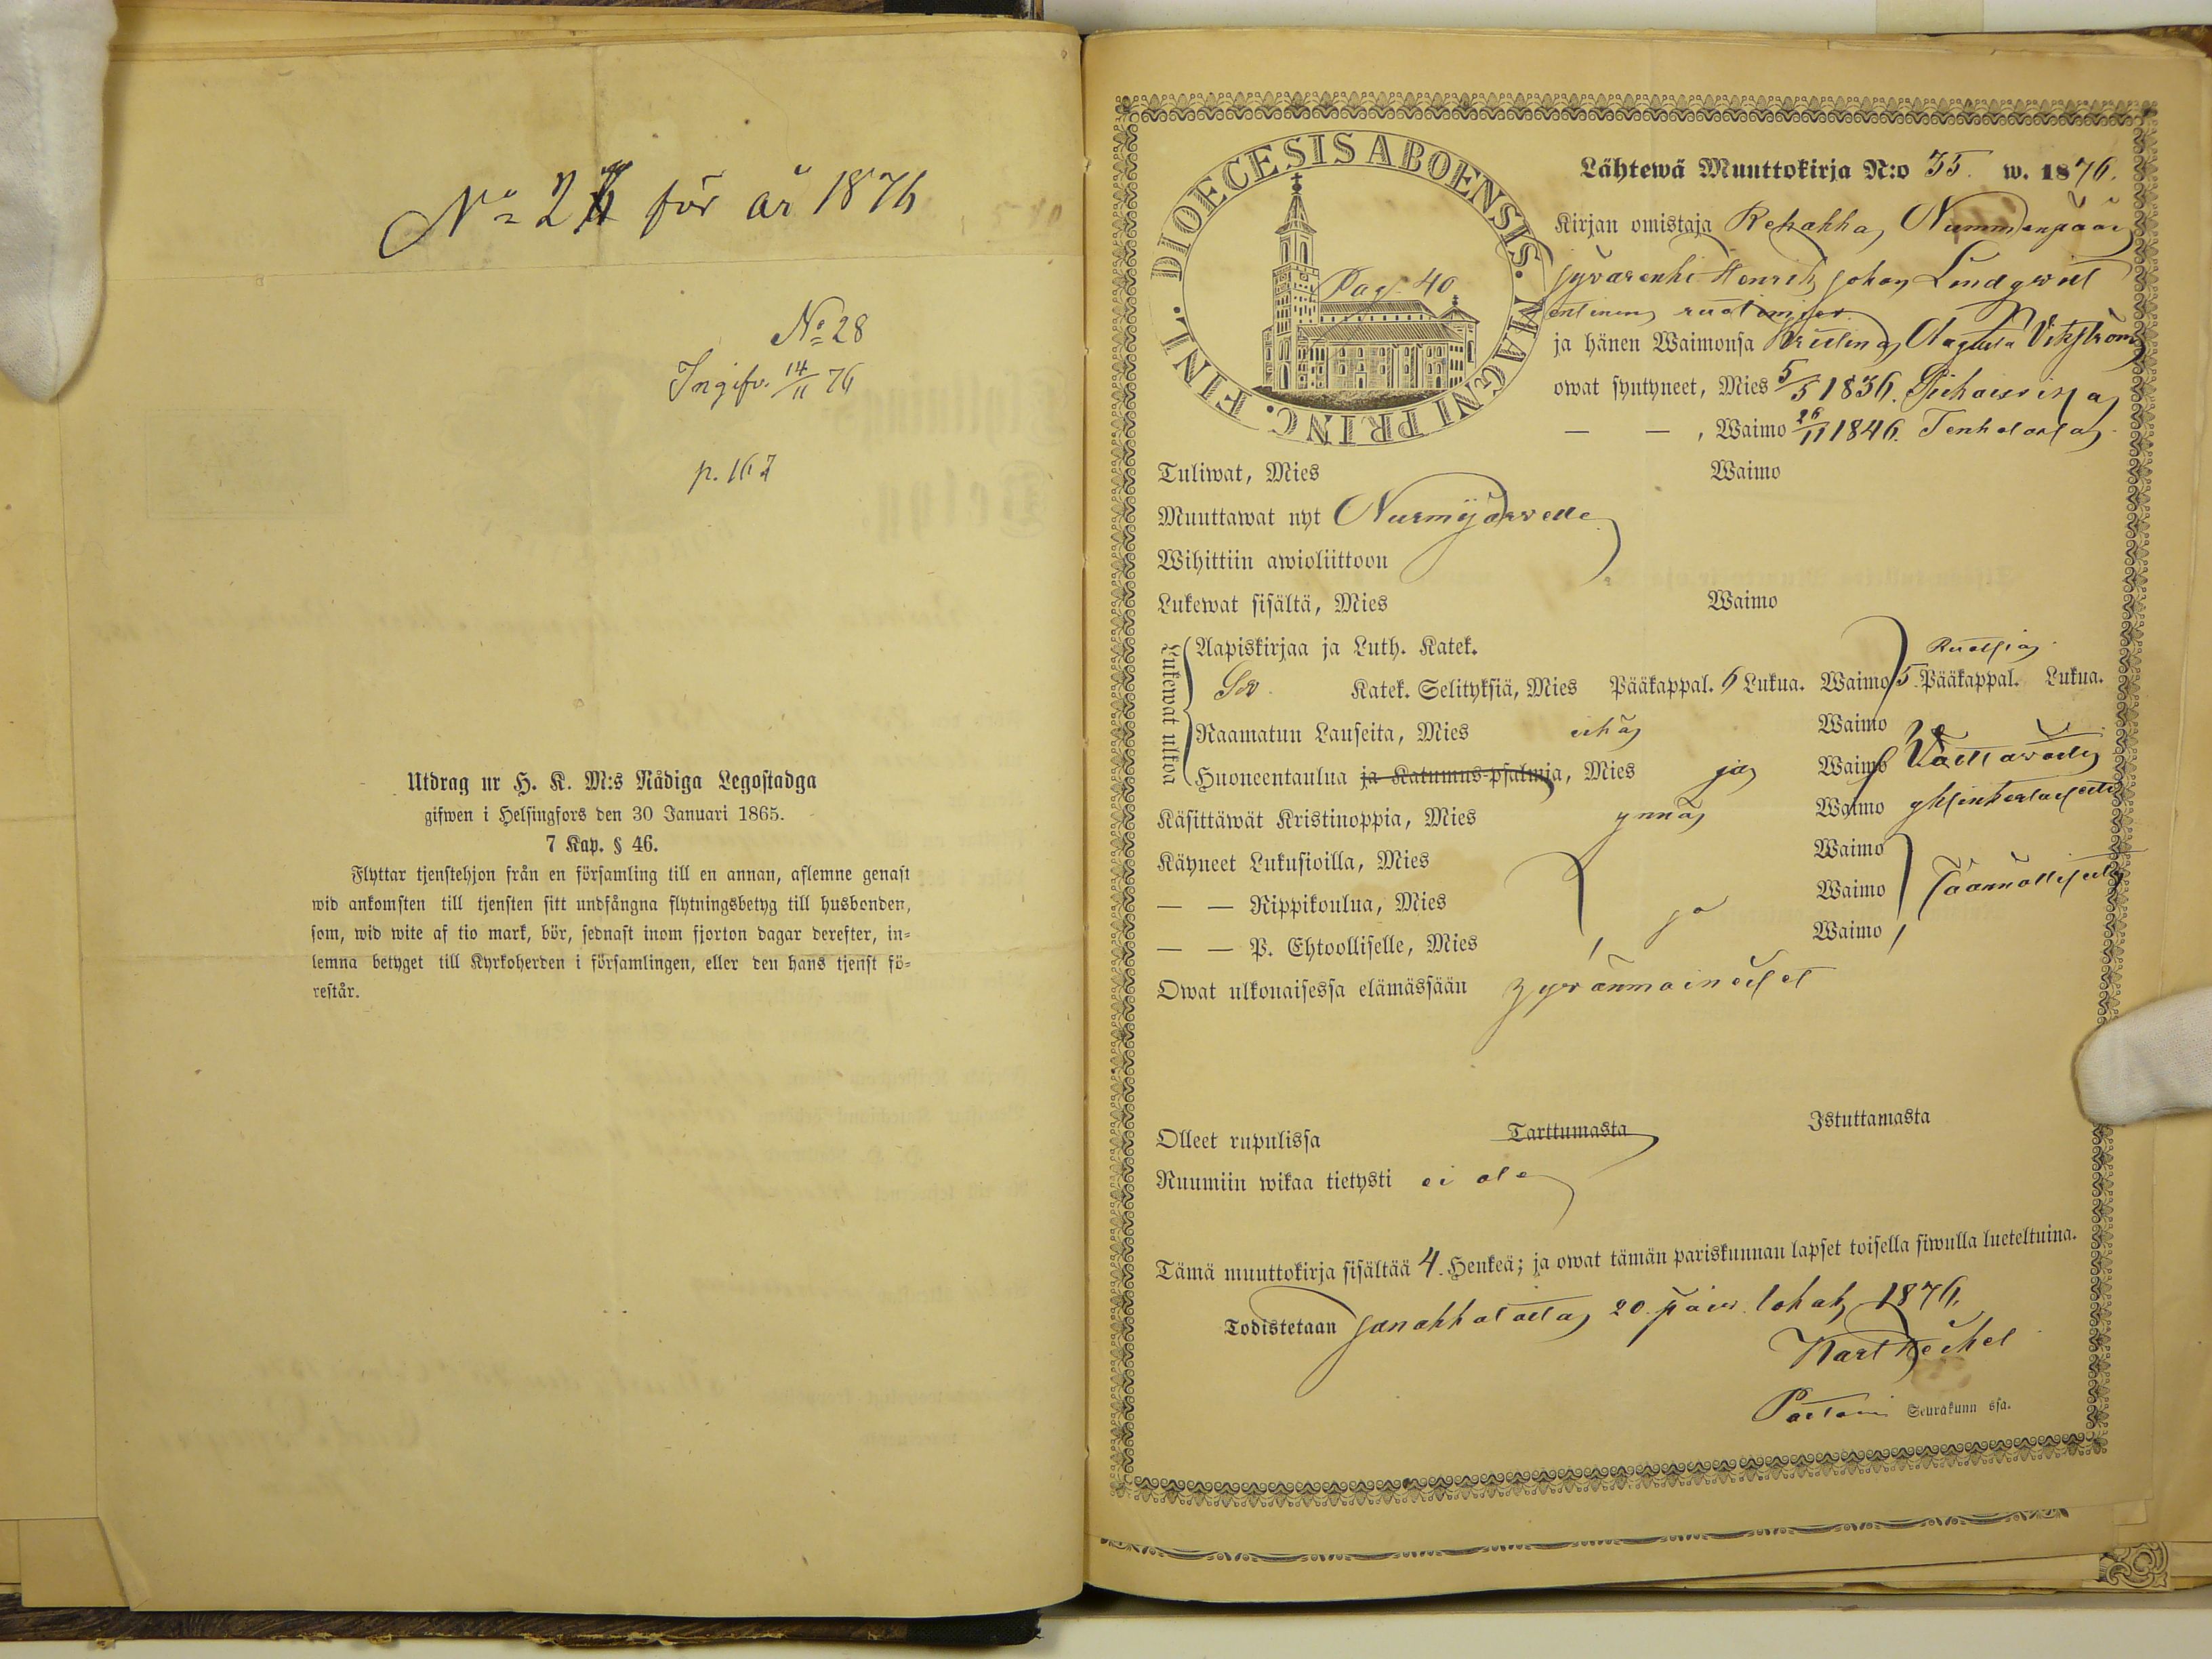 N:o 2 för år 1876
N:o 28
Ingifv. 14/11 76
p. 167
Utdrag ur H. K. M:s Nådiga Legostadga
gifwen i Helsingfors den 30 Januari 1865.
7 Kap. § 46.
Flyttar tjenstehjon från en församling till en annan, aflemne genast
wid ankomsten till tjensten sitt undfångna flytningsbetyg till husbonden,
som, wid wite af tio mark, bör, sednast inom fjorton dagar derefter, in-
lemna betyget till Kyrkoherden i församlingen, eller den hans tjenst fö-
restår.
DIOECESIS ABOENSIS. MAGNI PRINC. FINL.
Pag. 40
Lähtewä Muuttokirja N:o 35. w. 1876.
Kirjan omistaja Rehakka, Nummenpään
jyvärenki Henrik Johan Lindqvist
entinen
ja hänen Waimonsa Kristina Augusta Vikström
owat syntyneet, Mies 5/5 1836.
— — , Waimo 26/11 1846. Tenholassa
Tuliwat, Mies Waimo
Muuttawat nyt Nurmijärvelle
Wihittiin awioliittoon
Lukewat sisältä, Mies Waimo
Lukewat ulkoa
Aapiskirjaa ja Luth. Katek. Ruotsia
Sv. Katek. Selityksiä, Mies Pääkappal. 6 Lukua. Waimo 5 Pääkappal. Lukua.
Raamatun Lauseita, Mies eikä Waimo
Huoneentaulua ja Katumus-psalmja, Mies ja Waimo Välttävästi
Käsittäwät Kristinoppia, Mies ynnä Waimo yksinkertaisesti
Käyneet Lukusioilla, Mies Waimo
— — Rippikoulua, Mies Waimo säännöllisesti
— — P. Ehtoolliselle, Mies ja Waimo
Owat ulkonaisessa elämässään hyvänmaineiset
Olleet rupulissa Tarttumasta Istuttamasta
Ruumiin wikaa tietysti ei ole
Tämä muuttokirja sisältää 4 Henkeä; ja owat tämän pariskunnan lapset toisella siwulla lueteltuina.
Todistetaan Janakkalasta 20 päiv. lokak. 1876.
Pastori Seurakunn ssa.